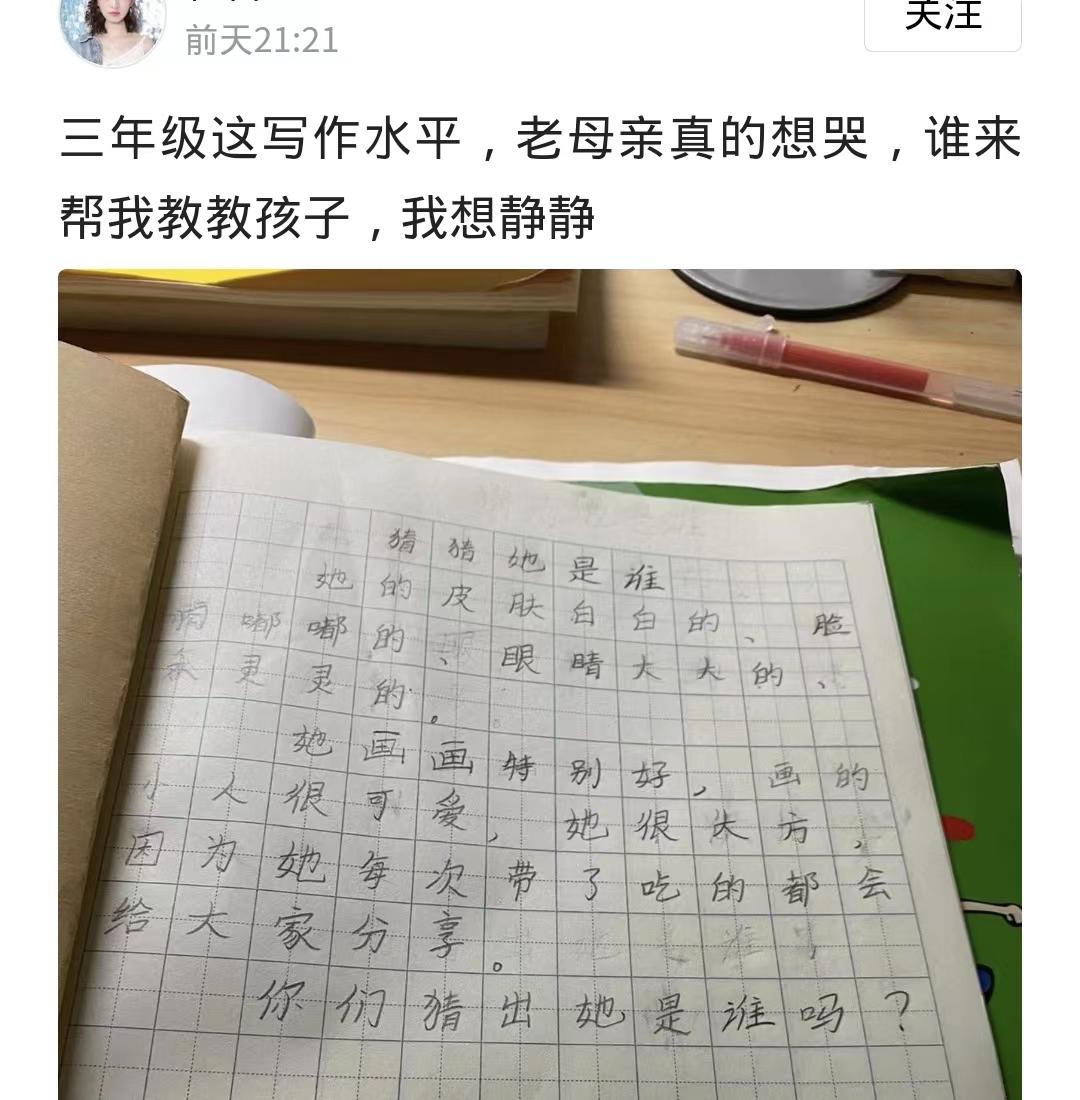 前天21:21
关注
三年级这写作水平，老母亲真的想哭，谁来
帮我教教孩子，我想静静
猜猜她是谁
她的皮肤白白的、脸
嘟嘟的、眼睛大大的、
灵灵的。
她画画特别好，画的
小人很可爱，她很大方，
因为她每次带了吃的都会
给大家分享。
你们猜出她是谁吗？